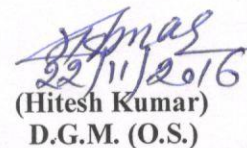 22/11/2016
(Hitesh Kumar)
D.G.M. (O.S.)